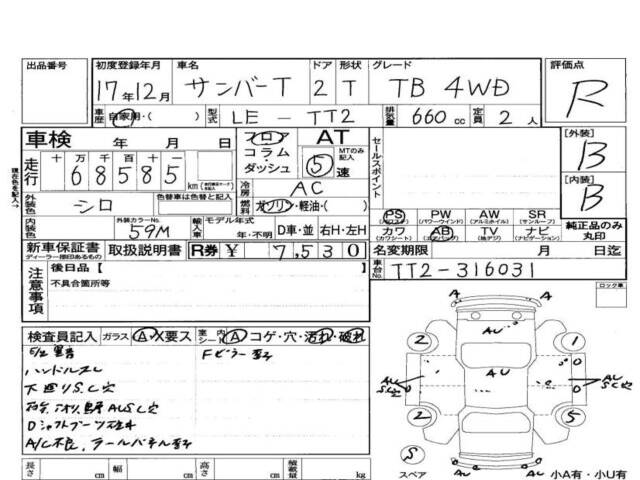 出品番号 初度登録年月 車名 ドア 形状 グレード 評価点
17年12月 サンバーT 2 T TB 4WD R
車歴 自家用・( ) 型式 LE-TT2 排気量 660 cc 定員 2 人
車検 年 月 日 フロア コラム・ダッシュ AT MTのみ記入 5 速 セールスポイント [外装] B
現在地を記入→ 走行 十 万 千 百 十 一 68585 km 冷房 AC [内装] B
外装色 シロ 色替車は色替と記入 元色 燃料 ガソリン・軽油・( )
PS (パワステ) PW (パワーウインド) AW (アルミホイル) SR (サンルーフ)
カワ (カワシート) AB (エアバック) TV (地デジ) ナビ (ナビゲーション) 純正品のみ丸印
内装色 外装カラーNo. 59M 輸入車 モデル年式 年・不明 D車・並 右H・左H
新車保証書 ディーラー捺印あるもの 取扱説明書 R券 ¥ 7,530 名変期限 月 日迄
注意事項 後日品[ ] 車台No. TT2-316031
不具合箇所等 ロック車
検査員記入 ガラス A・X要ス 室内 シート A コゲ・穴・汚れ・破れ
ハンドルスレ
下廻りS,C穴
A/C不良,
A A
AU
2 1
AU
AU S,C穴 AU S,C穴
2 5
S スペア
AU AU
長さ cm 幅 cm 高さ cm 積載量 kg 小A有・小U有